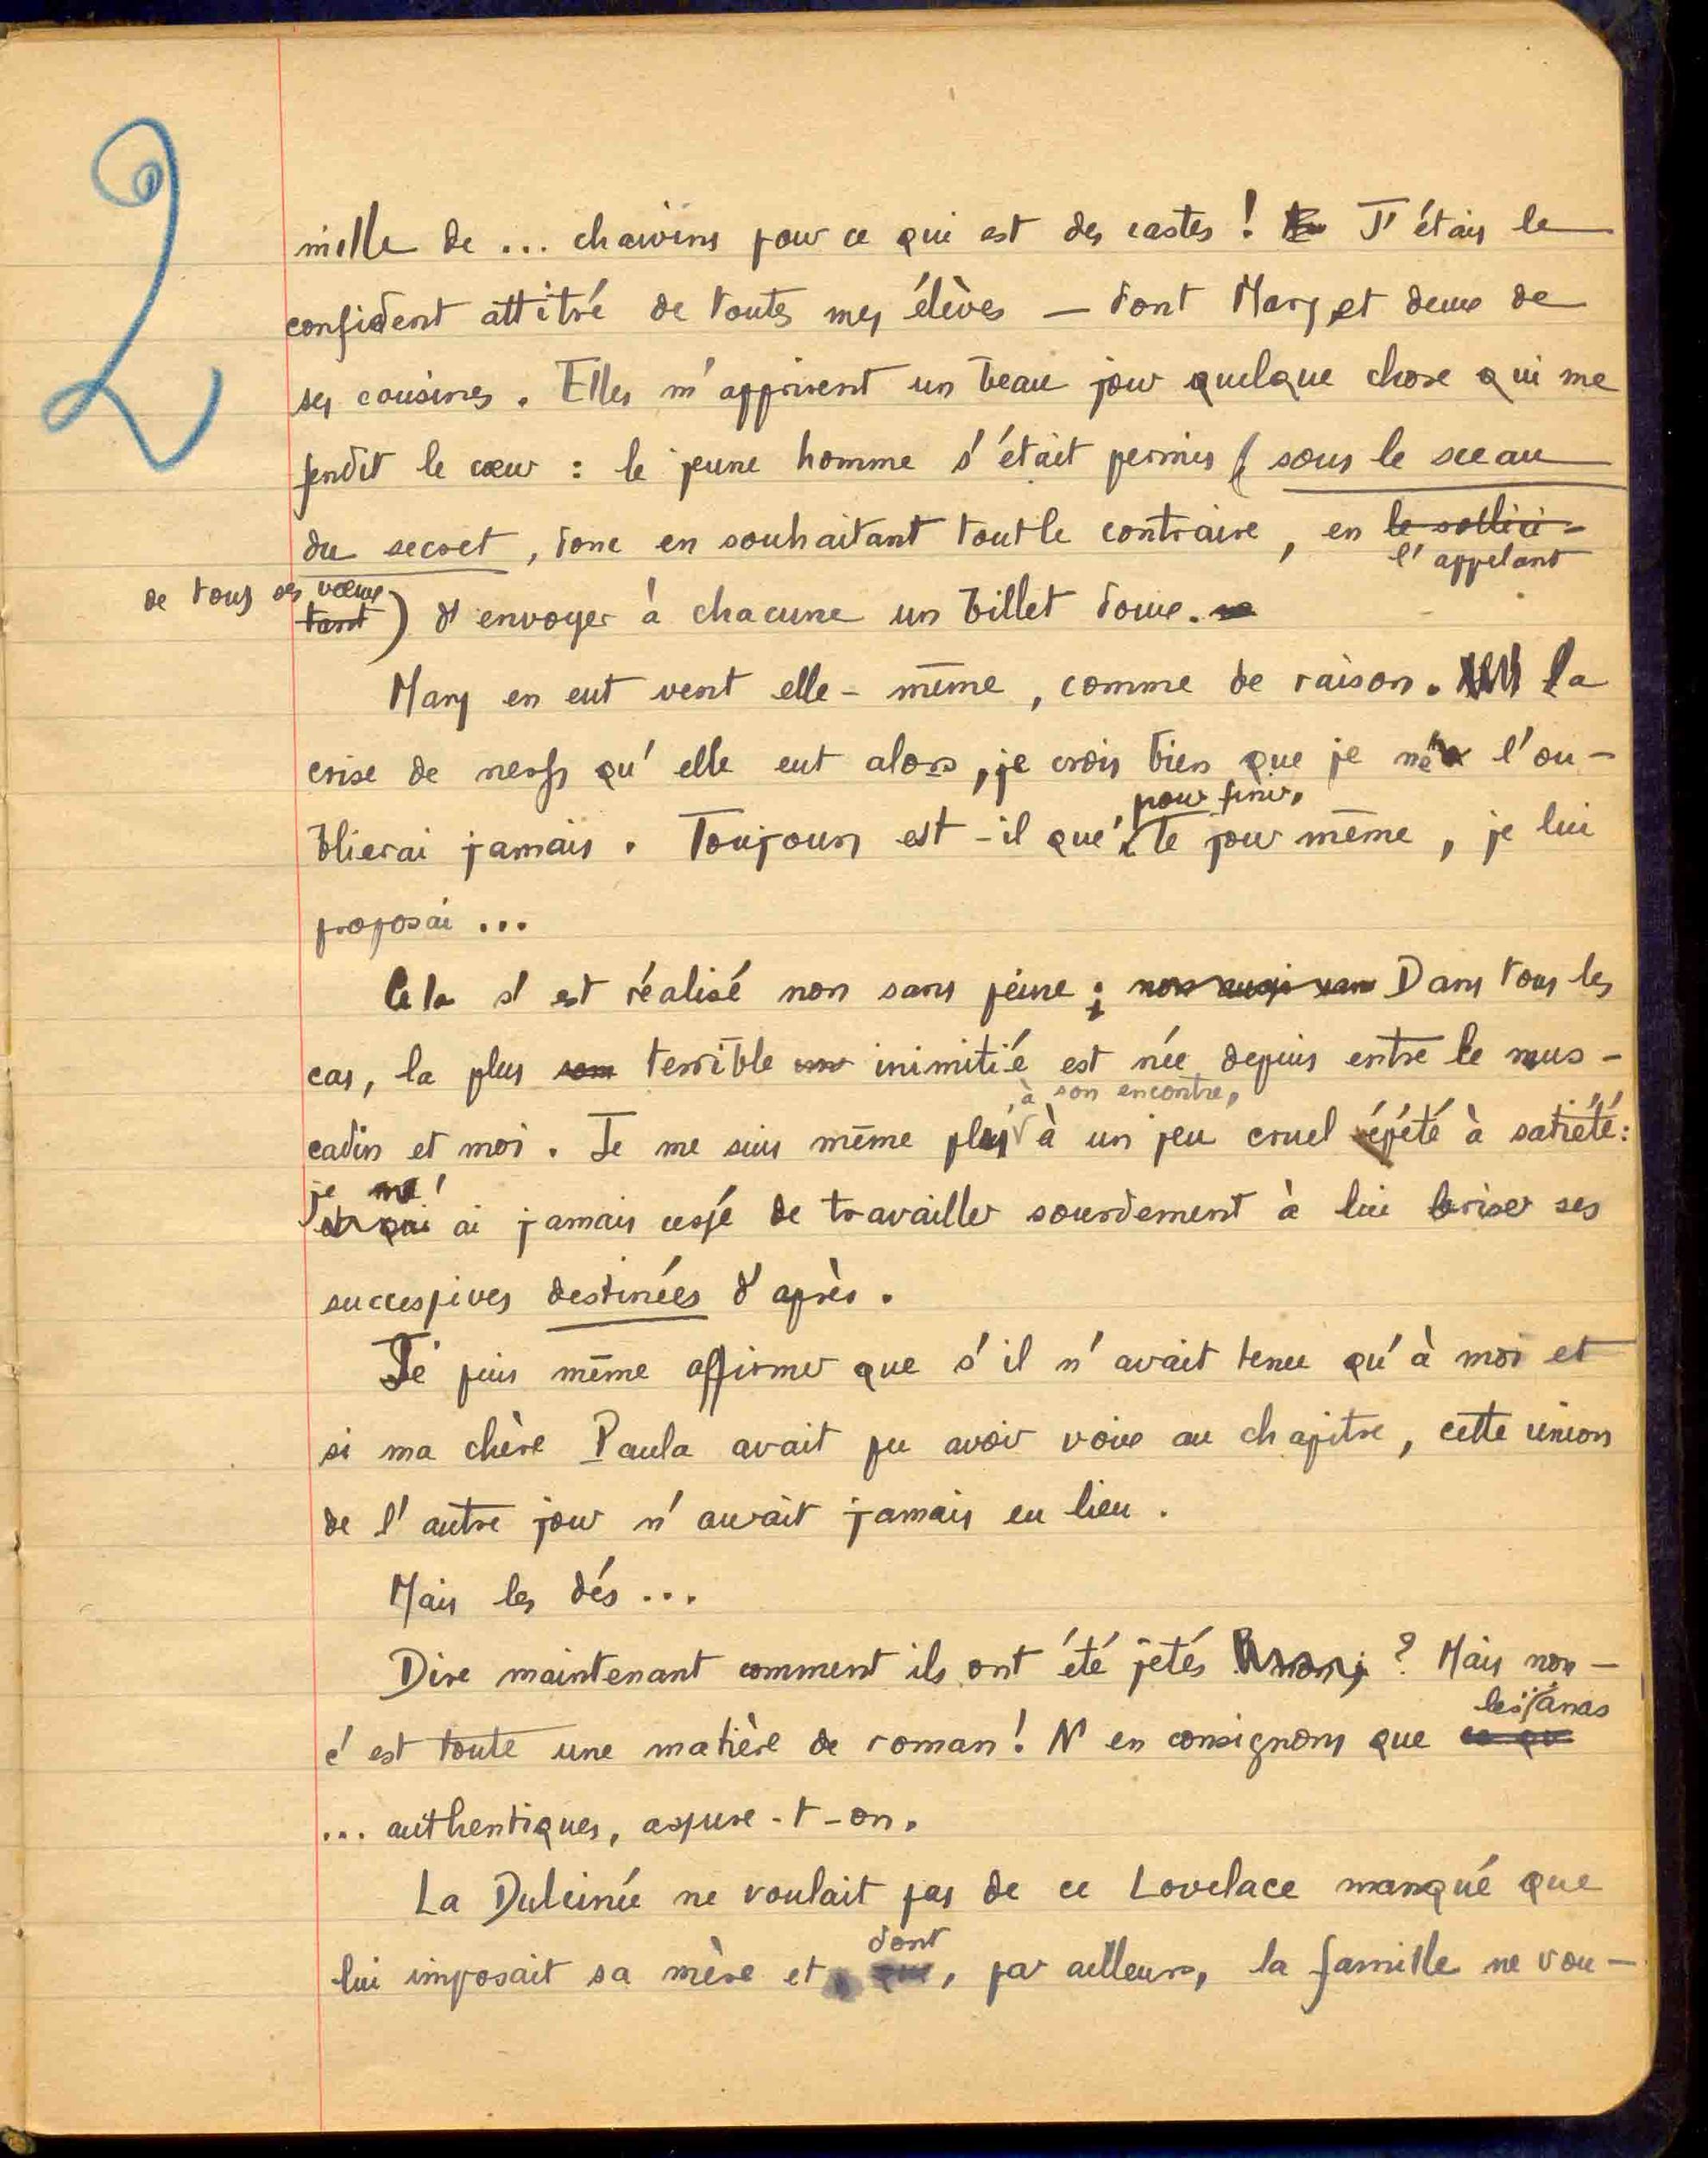 2
mille de ... chauvins pour ce qui est des castes ! J'étais le
confident attitré de toutes mes élèves — dont Mary et deux de
ses cousines. Elles m'apprirent un beau jour quelque chose qui me
fendit le cœur : le jeune homme s'était permis ( sous le sceau
du secret, donc en souhaitant tout le contraire, en le sollici-
l'appelant
de tous ses vœux
tant ) d'envoyer à chacune un billet doux.
Mary en eut vent elle-même, comme de raison. La
crise de nerfs qu'elle eut alors, je crois bien que je ne l'ou-
pour finir,
blierai jamais. Toujours est-il que le jour même, je lui
proposai ...
Cela s'est réalisé non sans peine ; Dans tous les
cas, la plus terrible inimitié est née depuis entre le mus-
, à son encontre,
cadin et moi. Je me suis même plu à un jeu cruel répété à satiété :
je n'
ai jamais cessé de travailler sourdement à lui briser ses
successives destinées d'après.
Je puis même affirmer que s'il n'avait tenu qu'à moi et
si ma chère Paula avait pu avoir voix au chapitre, cette union
de l'autre jour n'aurait jamais eu lieu.
Mais les dés ...
Dire maintenant comment ils ont été jetés ? Mais non —
les "anas
c'est toute une matière de roman ! N'en consignons que ce qu
... authentiques, assure-t-on.
La Dulcinée ne voulait pas de ce Lovelace manqué que
dont
lui imposait sa mère et que, par ailleurs, la famille ne vou-